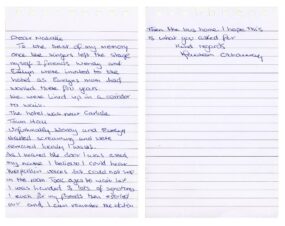 Dear Natalie
To the best of my memory
once the singers left the stage
myself 2 friends Wendy and
Evelyn were invited to the
hotel as Evelyns mum had
worked there for years
We were lined up in a corridor
to wait.
The hotel was near Carlisle
Town Hall
Unfortunately Wendy and Evelyn
started screaming and were
removed
As I neared the door I was asked
my name I believe I could hear
voices but could not see
in the room. Took ages to wait but
I was handed 3 lots of signatures
for my friends then
out and I can remember
Then the bus home. I hope this
is what you asked for
Kind regards